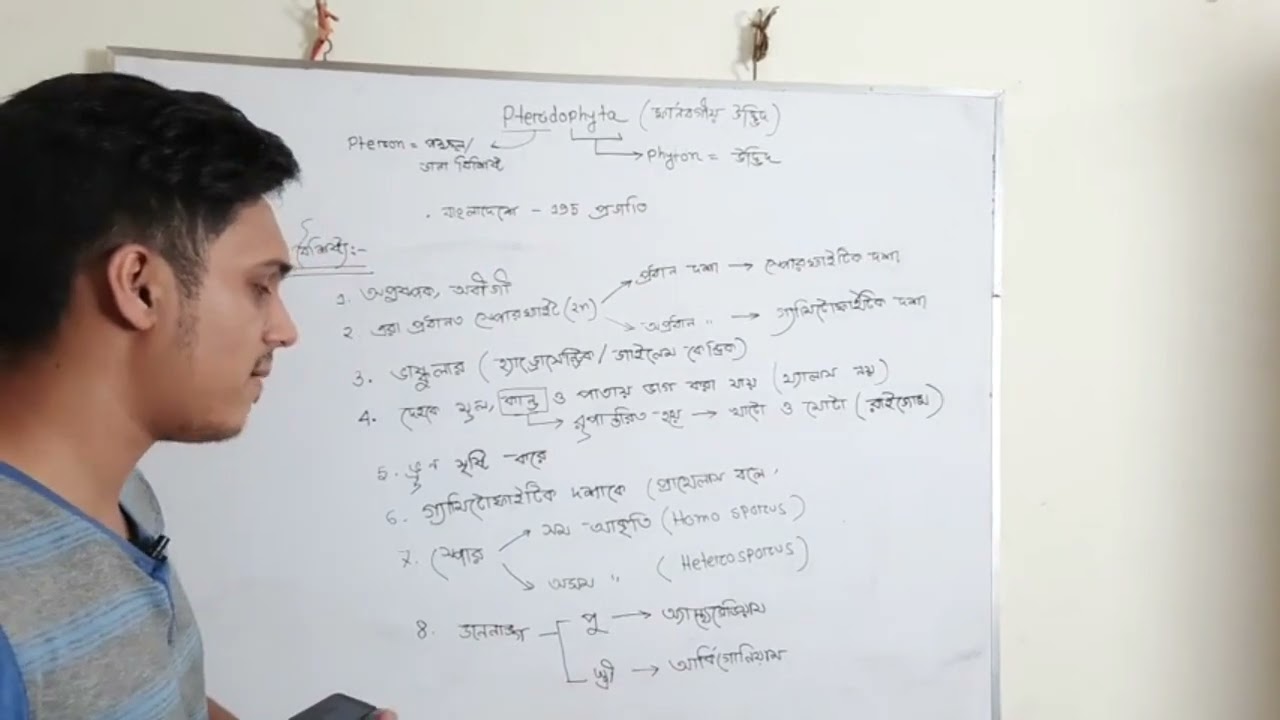 Pteridophyta (ফার্নবর্গীয় উদ্ভিদ)
Pteron = পক্ষল/
ডানা বিশিষ্ট
Phyton = উদ্ভিদ
. বাংলাদেশে - 195 প্রজাতি
বৈশিষ্ট্য:-
1. অপুষ্পক, অবীজী
2 এরা প্রধানত স্পোরোফাইট (2n)
প্রধান দশা → স্পোরোফাইটিক দশা
অপ্রধান " → গ্যামিটোফাইটিক দশা
3. ভাস্কুলার (হ্যাড্রোসেন্ট্রিক/ জাইলেম কেন্দ্রিক)
4. দেহকে মূল, কান্ড ও পাতায় ভাগ করা যায় (থ্যালাস নয়)
রূপান্তরিত হয় → খাটো ও মোটা (রাইজোম)
5. ভ্রূণ সৃষ্টি করে
6. গ্যামিটোফাইটিক দশাকে প্রোথেলাস বলে
7. স্পোর
সম আকৃতি (Homosporous)
অসম " (Heterosporous)
8. জননাঙ্গ
পুং → অ্যান্থেরিডিয়াম
স্ত্রী → আর্কিগোনিয়াম